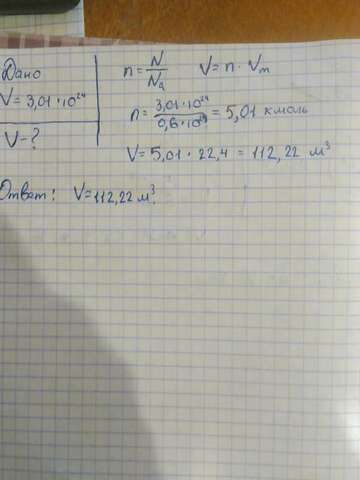 Дано
V = 3,01·10²⁴
V-?
n = N/Nₐ V = n · Vₘ
n = 3,01·10²⁴/0,6·10²⁴ = 5,01 кмоль
V = 5,01 · 22,4 = 112,22 м³
Ответ: V = 112,22 м³.